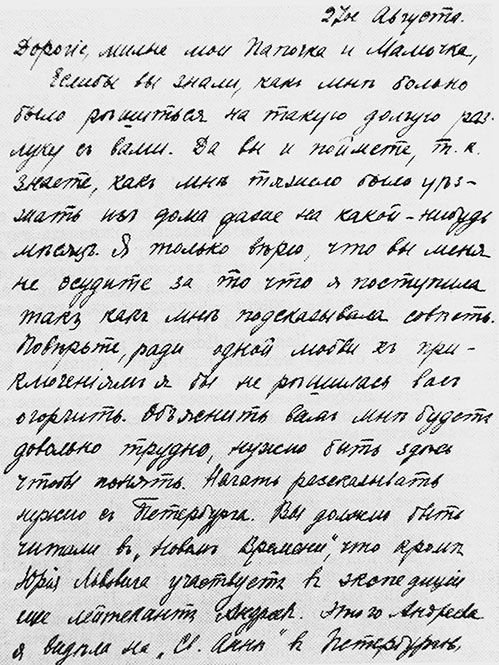 27ое Августа.
Дорогіе, милые мои Папочка и Мамочка,
Еслибы вы знали, какъ мнѣ больно
было рѣшиться на такую долгую раз-
луку съ вами. Да вы и поймете, т. к.
знаете, какъ мнѣ тяжело было уѣз-
жать изъ дома даже на какой-нибудь
мѣсяцъ. Я только вѣрю, что вы меня
не осудите за то что я поступила
такъ какъ мнѣ подсказывала совѣсть.
Повѣрьте, ради одной любви къ при-
ключеніямъ я бы не рѣшилась васъ
огорчить. Объяснить вамъ мнѣ будетъ
довольно трудно, нужно быть здѣсь
чтобы понять. Начать разсказывать
нужно съ Петербурга. Вы должно быть
читали въ „Новомъ Времени", что кромѣ
Юрія Львовича участвуетъ въ экспедиціи
еще лейтенантъ Андреевъ. Этого Андреева
я видѣла на „Св. Аннѣ" въ Петербургѣ,